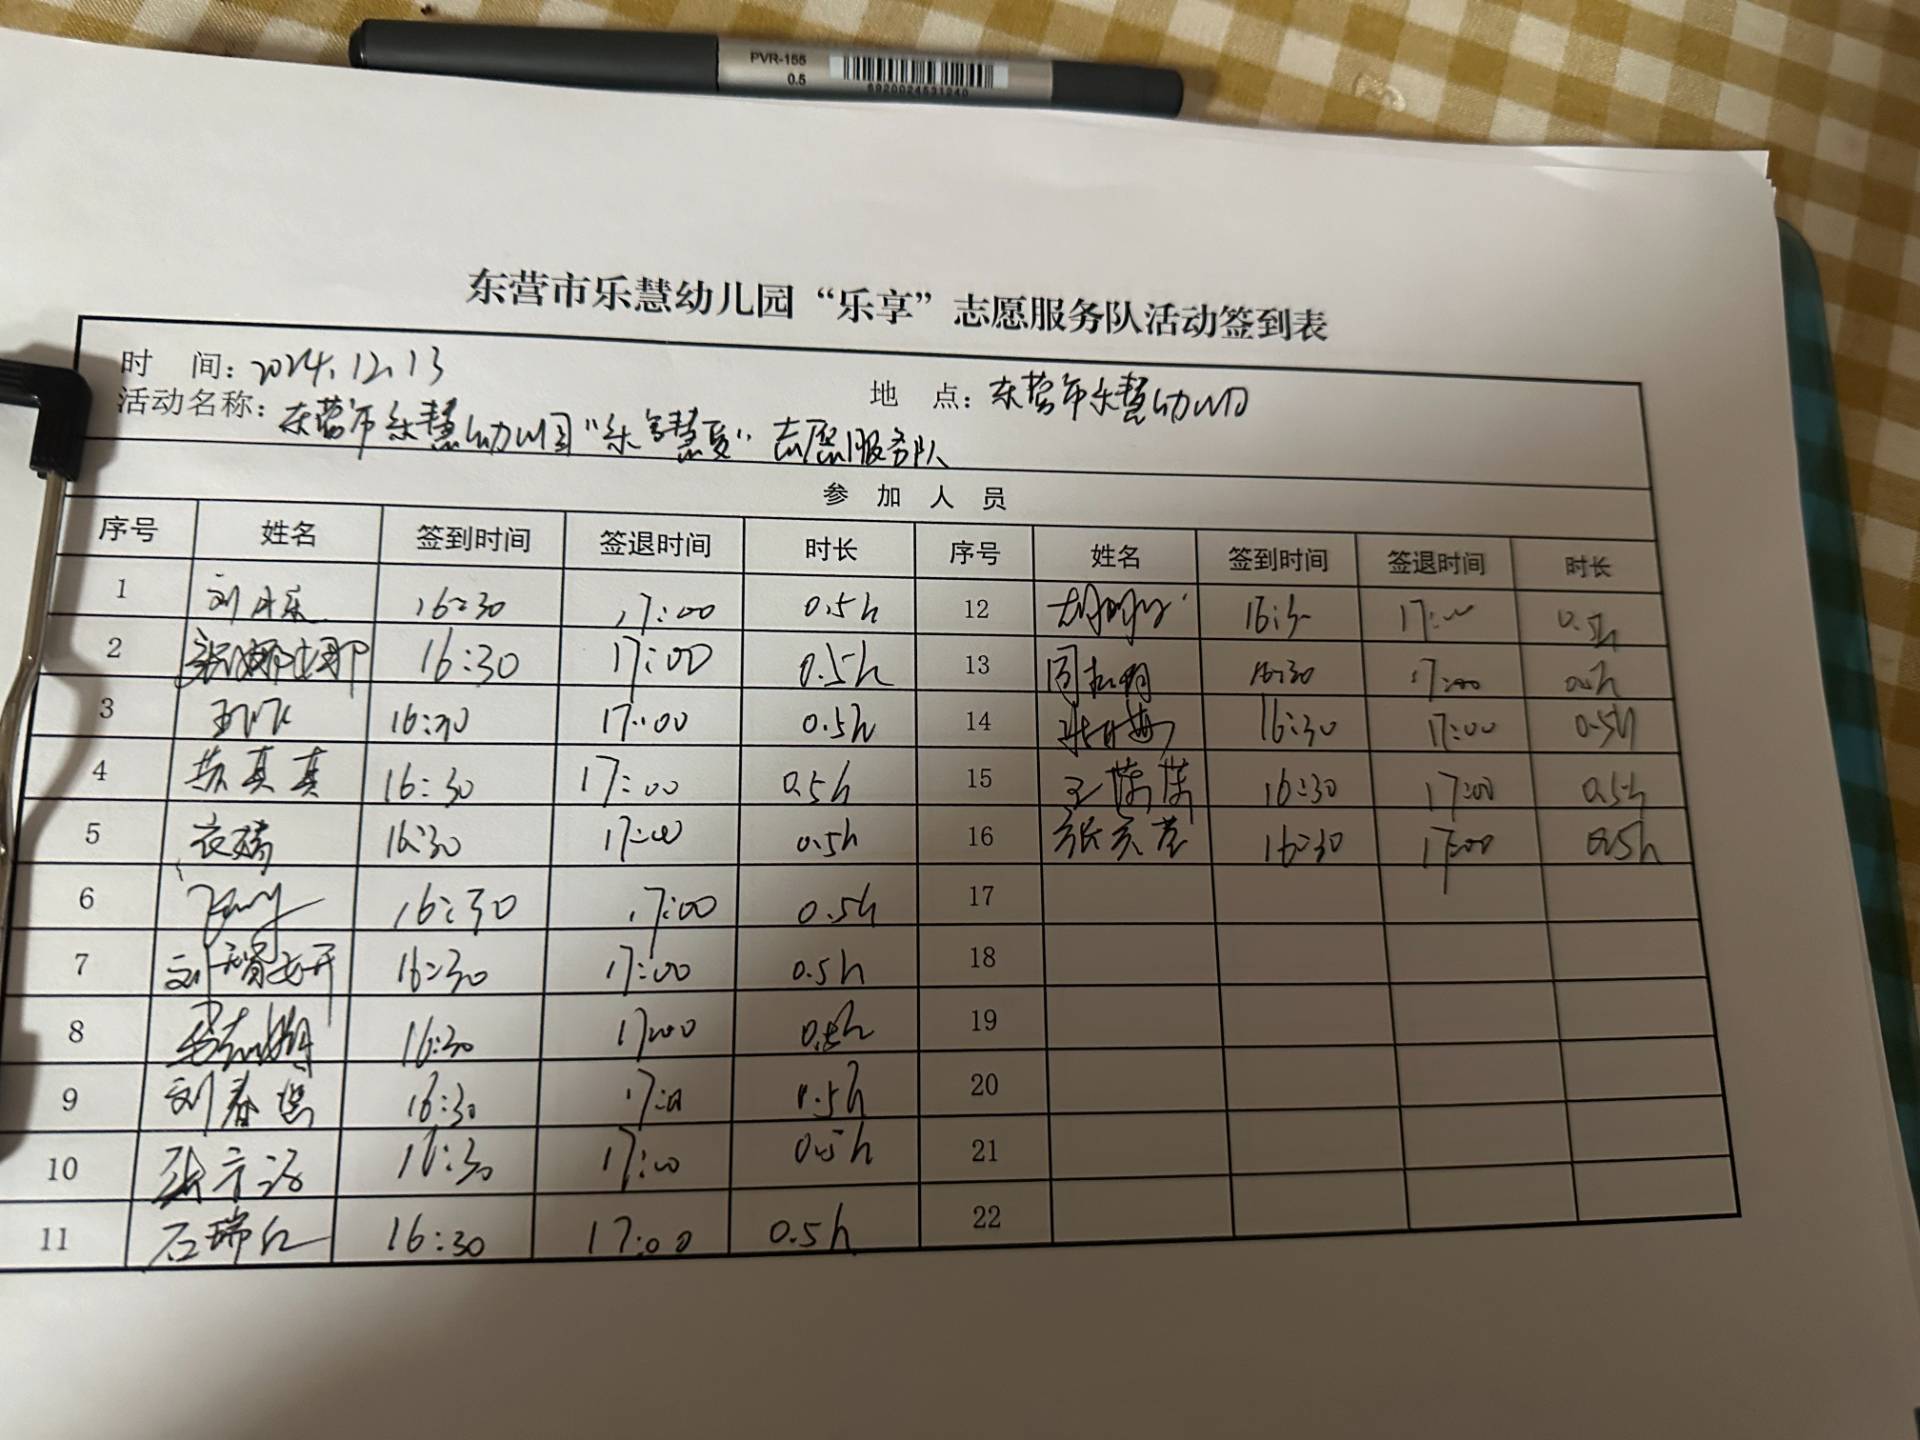 PVR-155
0.5
6920024531240
东营市乐慧幼儿园“乐享”志愿服务队活动签到表
时 间：2024.12.13
地 点：东营市乐慧幼儿园
活动名称：东营市乐慧幼儿园“乐 慧 ”志愿服务队
参 加 人 员
序号 姓名 签到时间 签退时间 时长 序号 姓名 签到时间 签退时间 时长
1 刘 16:30 17:00 0.5h 12 胡 16:30 17:00 0.5h
2 张娜娜 16:30 17:00 0.5h 13 周 16:30 17:00 0.5h
3 16:30 17:00 0.5h 14 张 16:30 17:00 0.5h
4 苏真真 16:30 17:00 0.5h 15 王 16:30 17:00 0.5h
5 衣瑞 16:30 17:00 0.5h 16 张 16:30 17:00 0.5h
6 16:30 17:00 0.5h 17
7 刘 16:30 17:00 0.5h 18
8 16:30 17:00 0.5h 19
9 刘春 16:30 17:00 0.5h 20
10 张 16:30 17:00 0.5h 21
11 石瑞红 16:30 17:00 0.5h 22